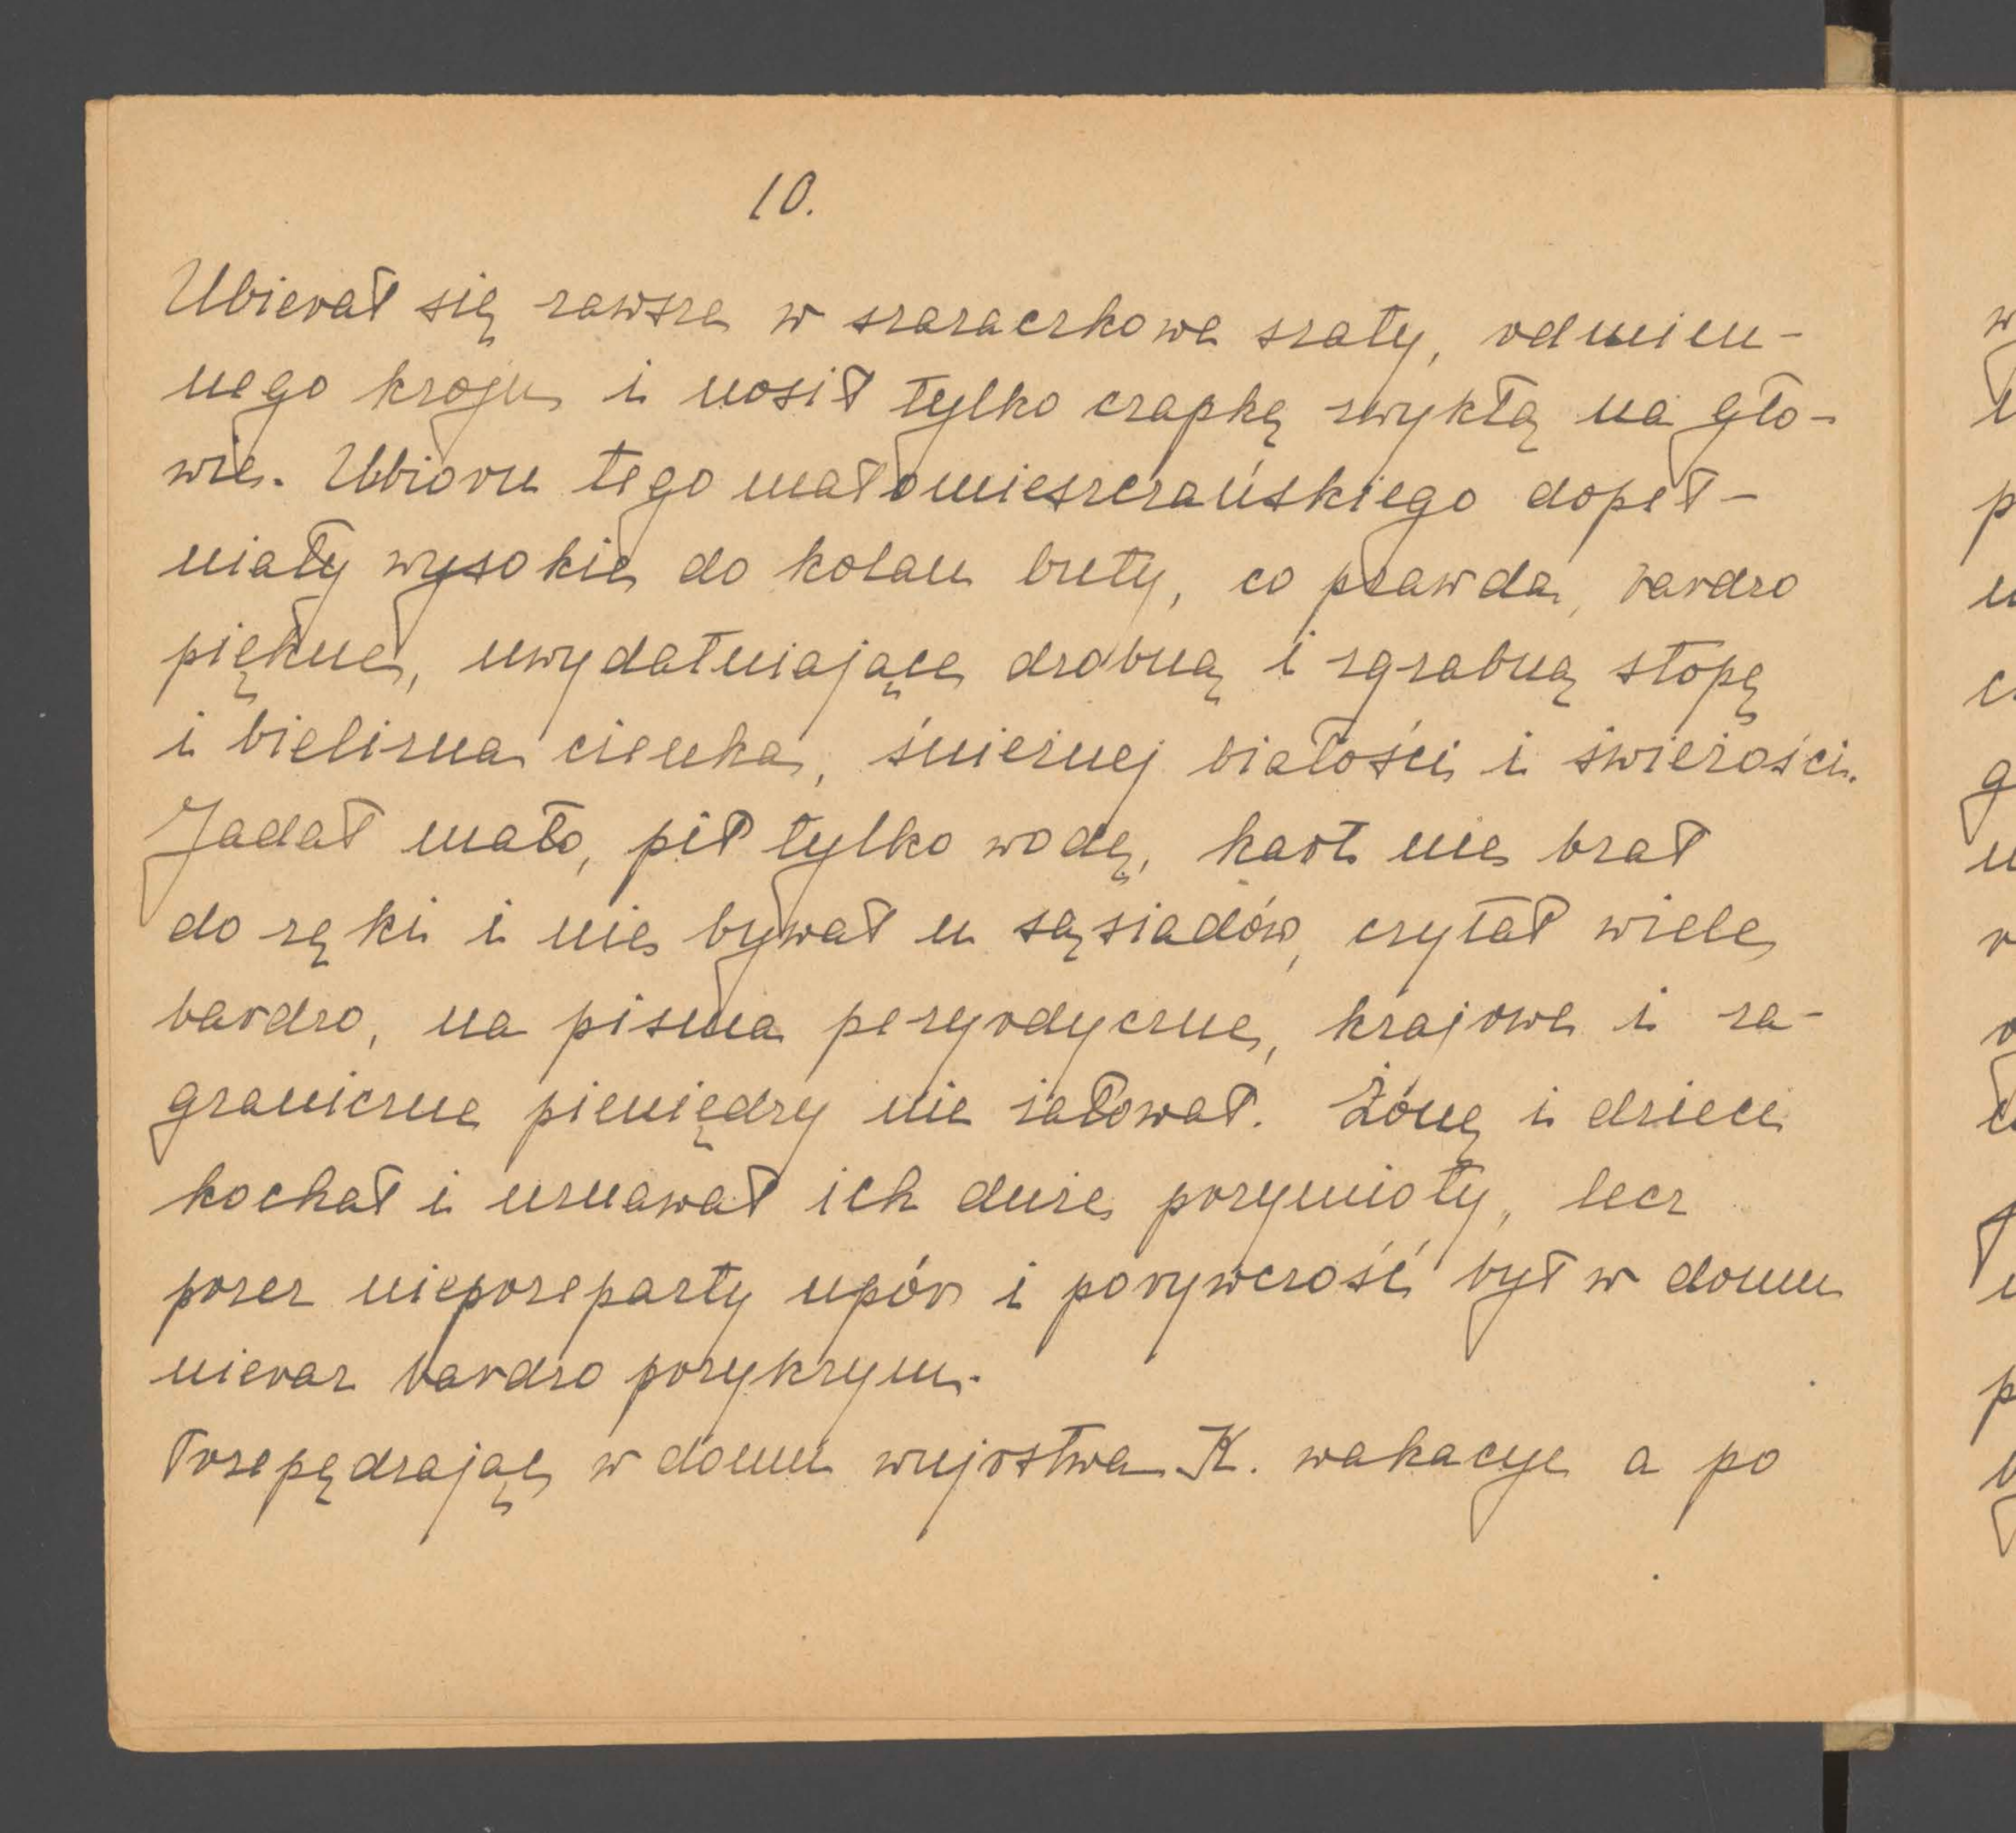 10.
Ubierał się zawsze w szaraczkowe szaty, odmien-
nego kroju i nosił tylko czapkę zwykłą na gło-
wie. Ubioru tego małomieszczańskiego dopeł-
niały wysokie do kolan buty, co prawda, bardzo
piękne, uwydatniające drobną i zgrabną stopę
i bielizna cienka, śnieżnej białości i świeżości.
Jadał mało, pił tylko wodę, kart nie brał
do ręki i nie bywał u sąsiadów, czytał wiele
bardzo, na pisma peryodyczne, krajowe i za-
graniczne pieniędzy nie żałował. Żonę i dzieci
kochał i uznawał ich duże przymioty, lecz
przez nieprzeparty upór i porywczość był w domu
nieraz bardzo przykrym.
Przepędzając w domu wujostwa K. wakacye a po